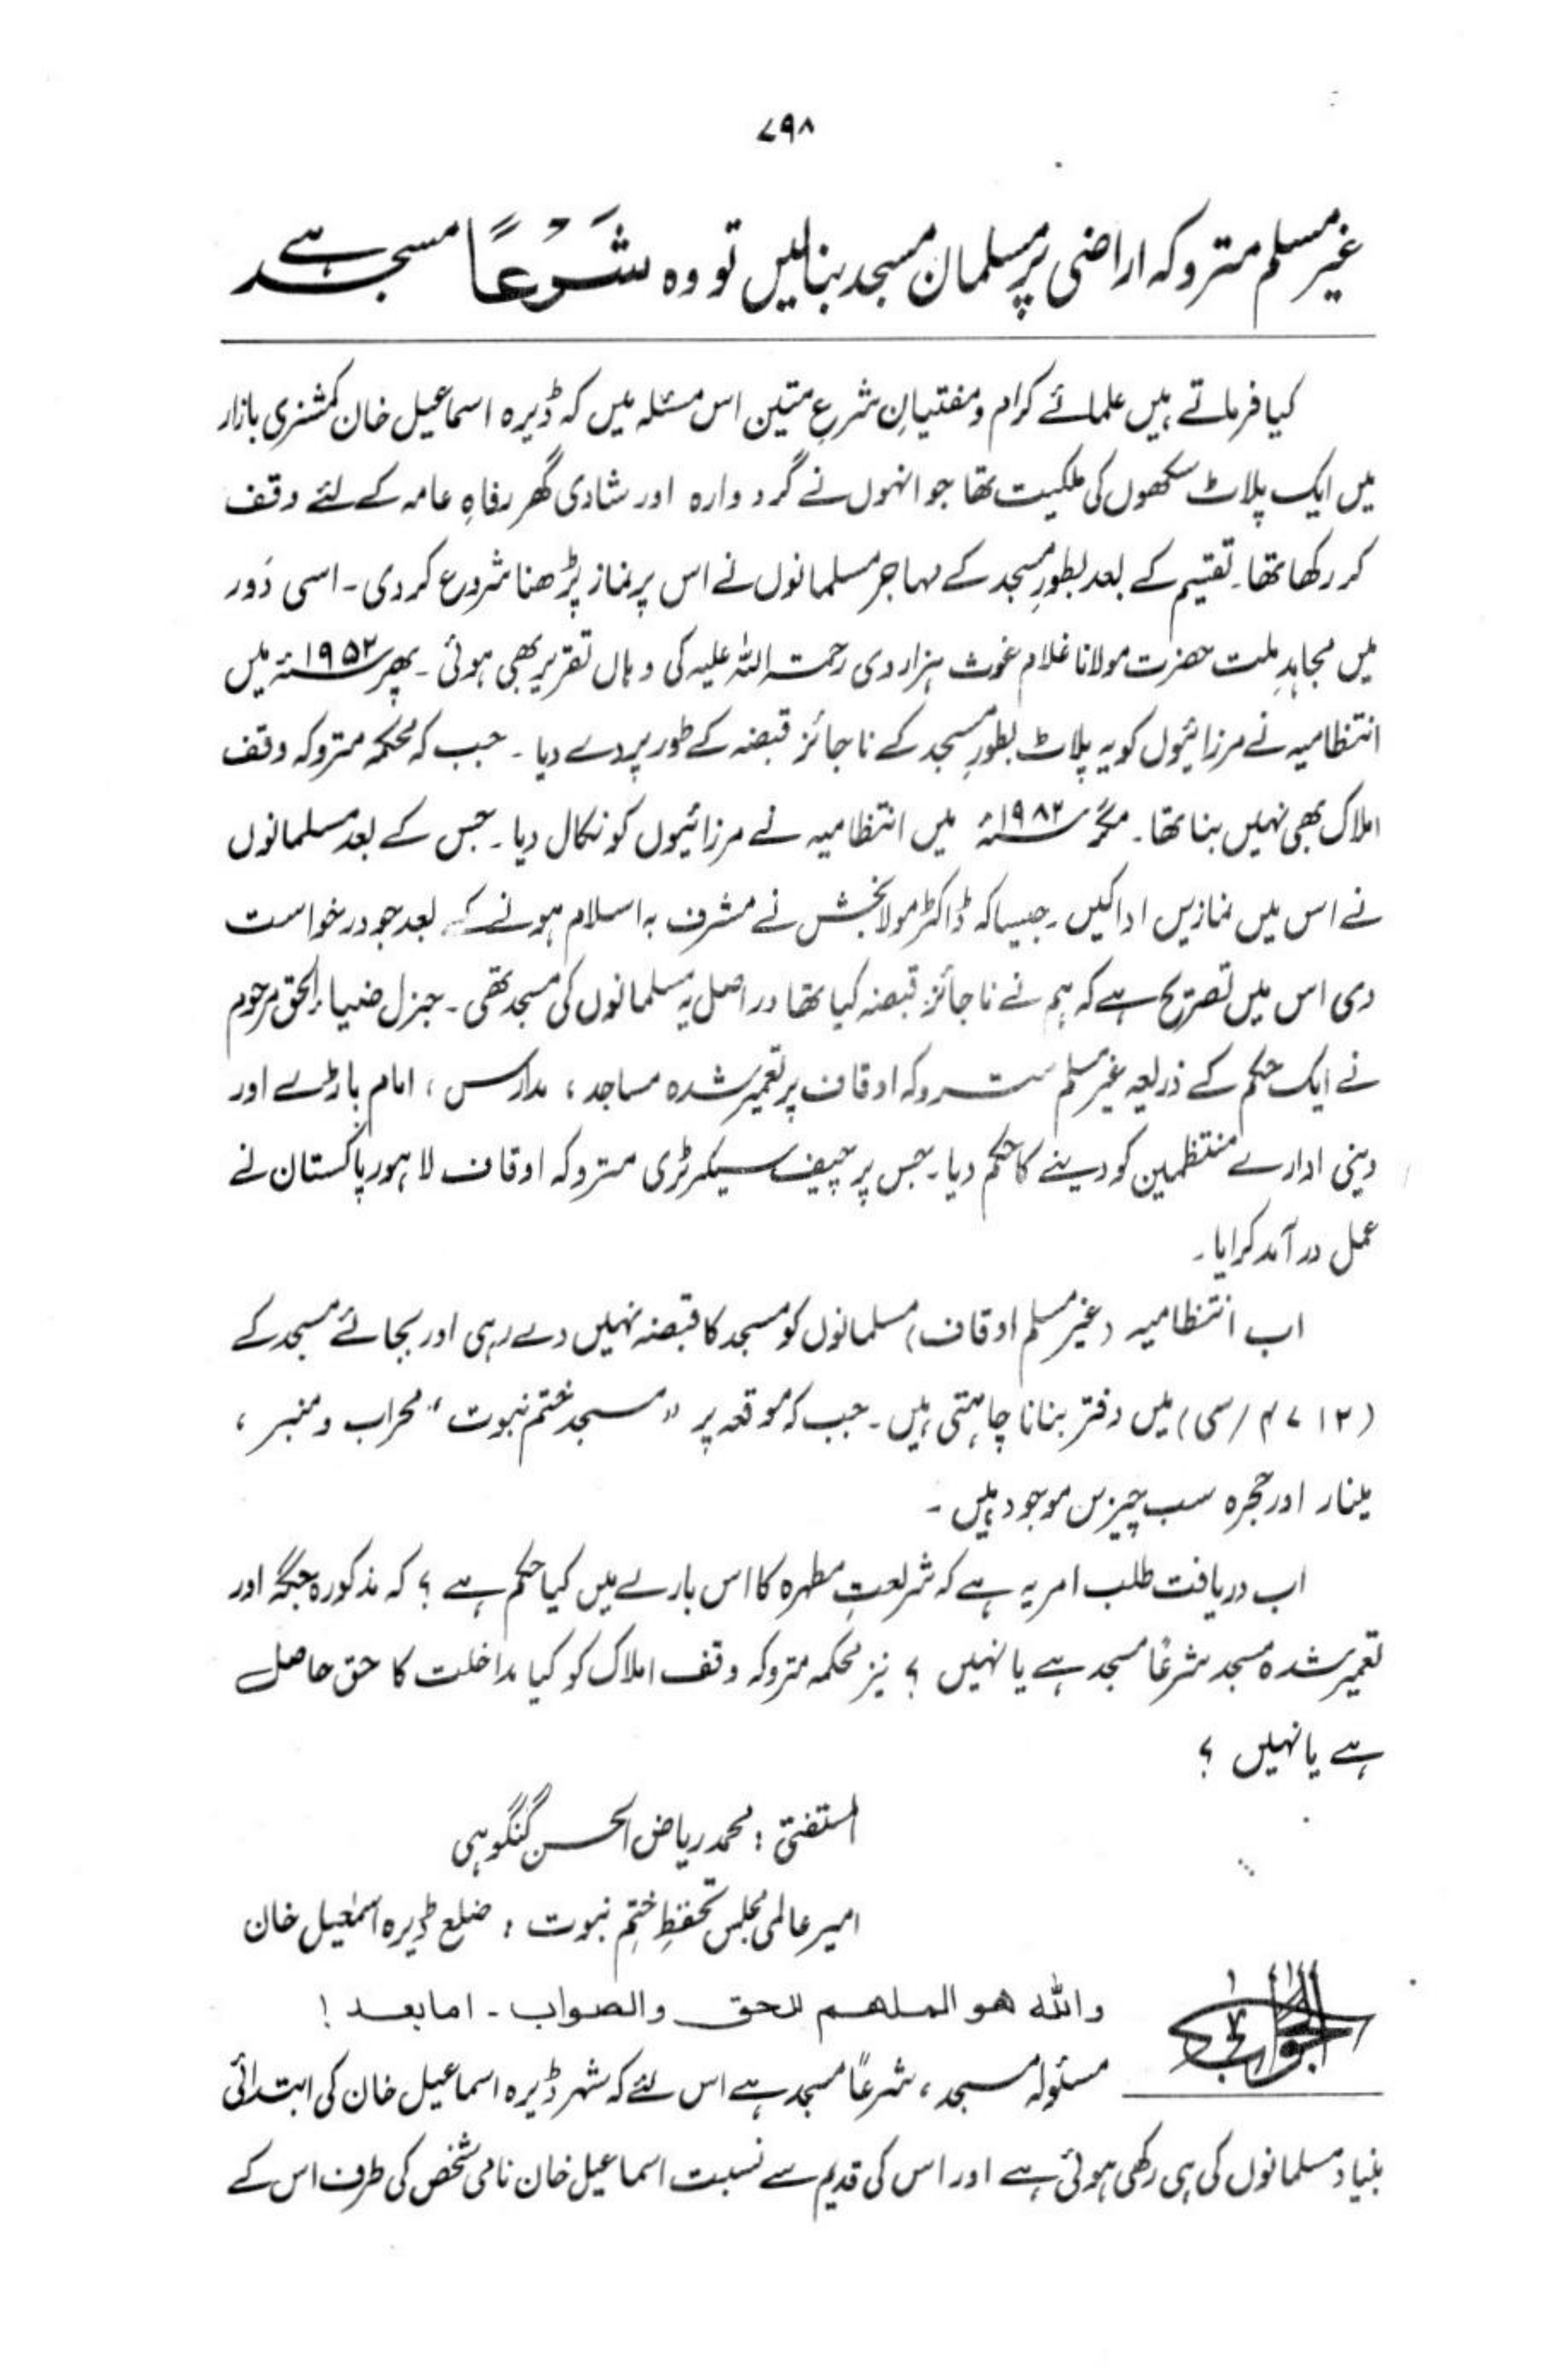 ۷۹۸
غیر مسلم متروکہ اراضی پر مسلمان مسجد بنا لیں تو وہ شَرْعاً مسجد ہے
کیا فرماتے ہیں علمائے کرام و مفتیانِ شرعِ متین اس مسئلہ میں کہ ڈیرہ اسماعیل خان کمشنری بازار
میں ایک پلاٹ سکھوں کی ملکیت تھا جو انہوں نے گردوارہ اور شادی گھر رفاہِ عامہ کے لئے وقف
کر رکھا تھا۔ تقسیم کے بعد بطورِ مسجد کے مہاجر مسلمانوں نے اس پر نماز پڑھنا شروع کر دی۔ اسی دَور
میں مجاہدِ ملت حضرت مولانا غلام غوث ہزاروی رحمتہ اللہ علیہ کی وہاں تقریر بھی ہوئی۔ پھر ۱۹۵۲ء میں
انتظامیہ نے مرزائیوں کو یہ پلاٹ بطورِ مسجد کے ناجائز قبضہ کے طور پر دے دیا۔ جب کہ محکمہ متروکہ وقف
املاک بھی نہیں بنا تھا۔ مگر ۱۹۸۲ء میں انتظامیہ نے مرزائیوں کو نکال دیا۔ جس کے بعد مسلمانوں
نے اس میں نمازیں ادا کیں۔ جیسا کہ ڈاکٹر مولا بخش نے مشرف بہ اسلام ہونے کے بعد جو درخواست
دی اس میں تصریح ہے کہ ہم نے ناجائز قبضہ کیا تھا دراصل یہ مسلمانوں کی مسجد تھی۔ جنرل ضیاء الحق مرحوم
نے ایک حکم کے ذریعہ غیر مسلم متروکہ اوقاف پر تعمیر شدہ مساجد، مدارس، امام باڑے اور
دینی ادارے منتظمین کو دینے کا حکم دیا۔ جس پر چیف سیکرٹری متروکہ اوقاف لاہور پاکستان نے
عمل در آمد کرایا۔
اب انتظامیہ (غیر مسلم اوقاف) مسلمانوں کو مسجد کا قبضہ نہیں دے رہی اور بجائے مسجد کے
(۴۷۱۲/سی) میں دفتر بنانا چاہتی ہیں۔ جب کہ موقعہ پر "مسجد ختم نبوت" محراب و منبر،
مینار اور حجرہ سب چیزیں موجود ہیں۔
اب دریافت طلب امر یہ ہے کہ شریعتِ مطہرہ کا اس بارے میں کیا حکم ہے؟ کہ مذکورہ جگہ اور
تعمیر شدہ مسجد شرعاً مسجد ہے یا نہیں؟ نیز محکمہ متروکہ وقف املاک کو کیا مداخلت کا حق حاصل
ہے یا نہیں؟
المستفتی: محمد ریاض الحسن گنگوہی
امیر عالمی مجلس تحفظِ ختمِ نبوت: ضلع ڈیرہ اسمٰعیل خان
الجواب
واللہ ھو الملھم للحق والصواب۔ اما بعد!
مسئولہ مسجد، شرعاً مسجد ہے اس لئے کہ شہر ڈیرہ اسماعیل خان کی ابتدائی
بنیاد مسلمانوں کی ہی رکھی ہوئی ہے اور اس کی قدیم سے نسبت اسماعیل خان نامی شخص کی طرف اس کے